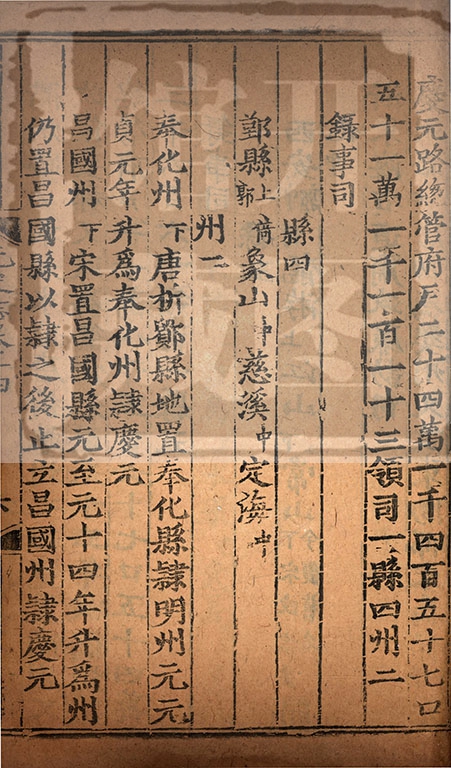 慶元路總管府戶二十四萬一千四百五十七口
五十一萬一千一百一十三領司一縣四州二
錄事司
縣四
鄞縣上倚郭象山中慈溪中定海中
州二
奉化州下唐析鄮縣地置奉化縣隸明州元元
貞元年升爲奉化州隸慶元
昌國州下宋置昌國縣元至元十四年升爲州
仍置昌國縣以隸之後止立昌國州隸慶元